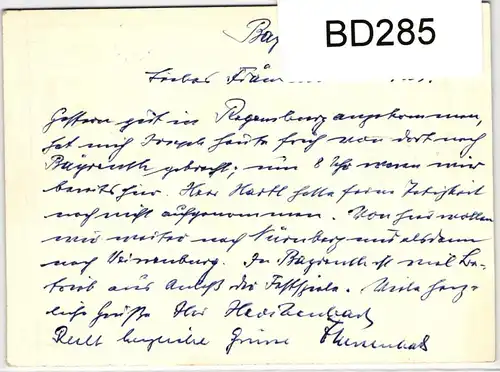 BD285
Bay
Liebes Fräu
Gestern gut in Regensburg angekommen,
hat mich Joseph heute früh von dort nach
Bayreuth gebracht; um 8 Uhr waren wir
bereits hier. Herr Hartl hatte seine Tätigkeit
noch nicht aufgenommen. Von hier wollen
wir weiter nach Nürnberg und alsdann
nach . In Bayreuth ist viel Be-
trieb aus Anlaß der Festspiele. Viele herz-
liche Grüße Ihr
Recht herzliche Grüsse